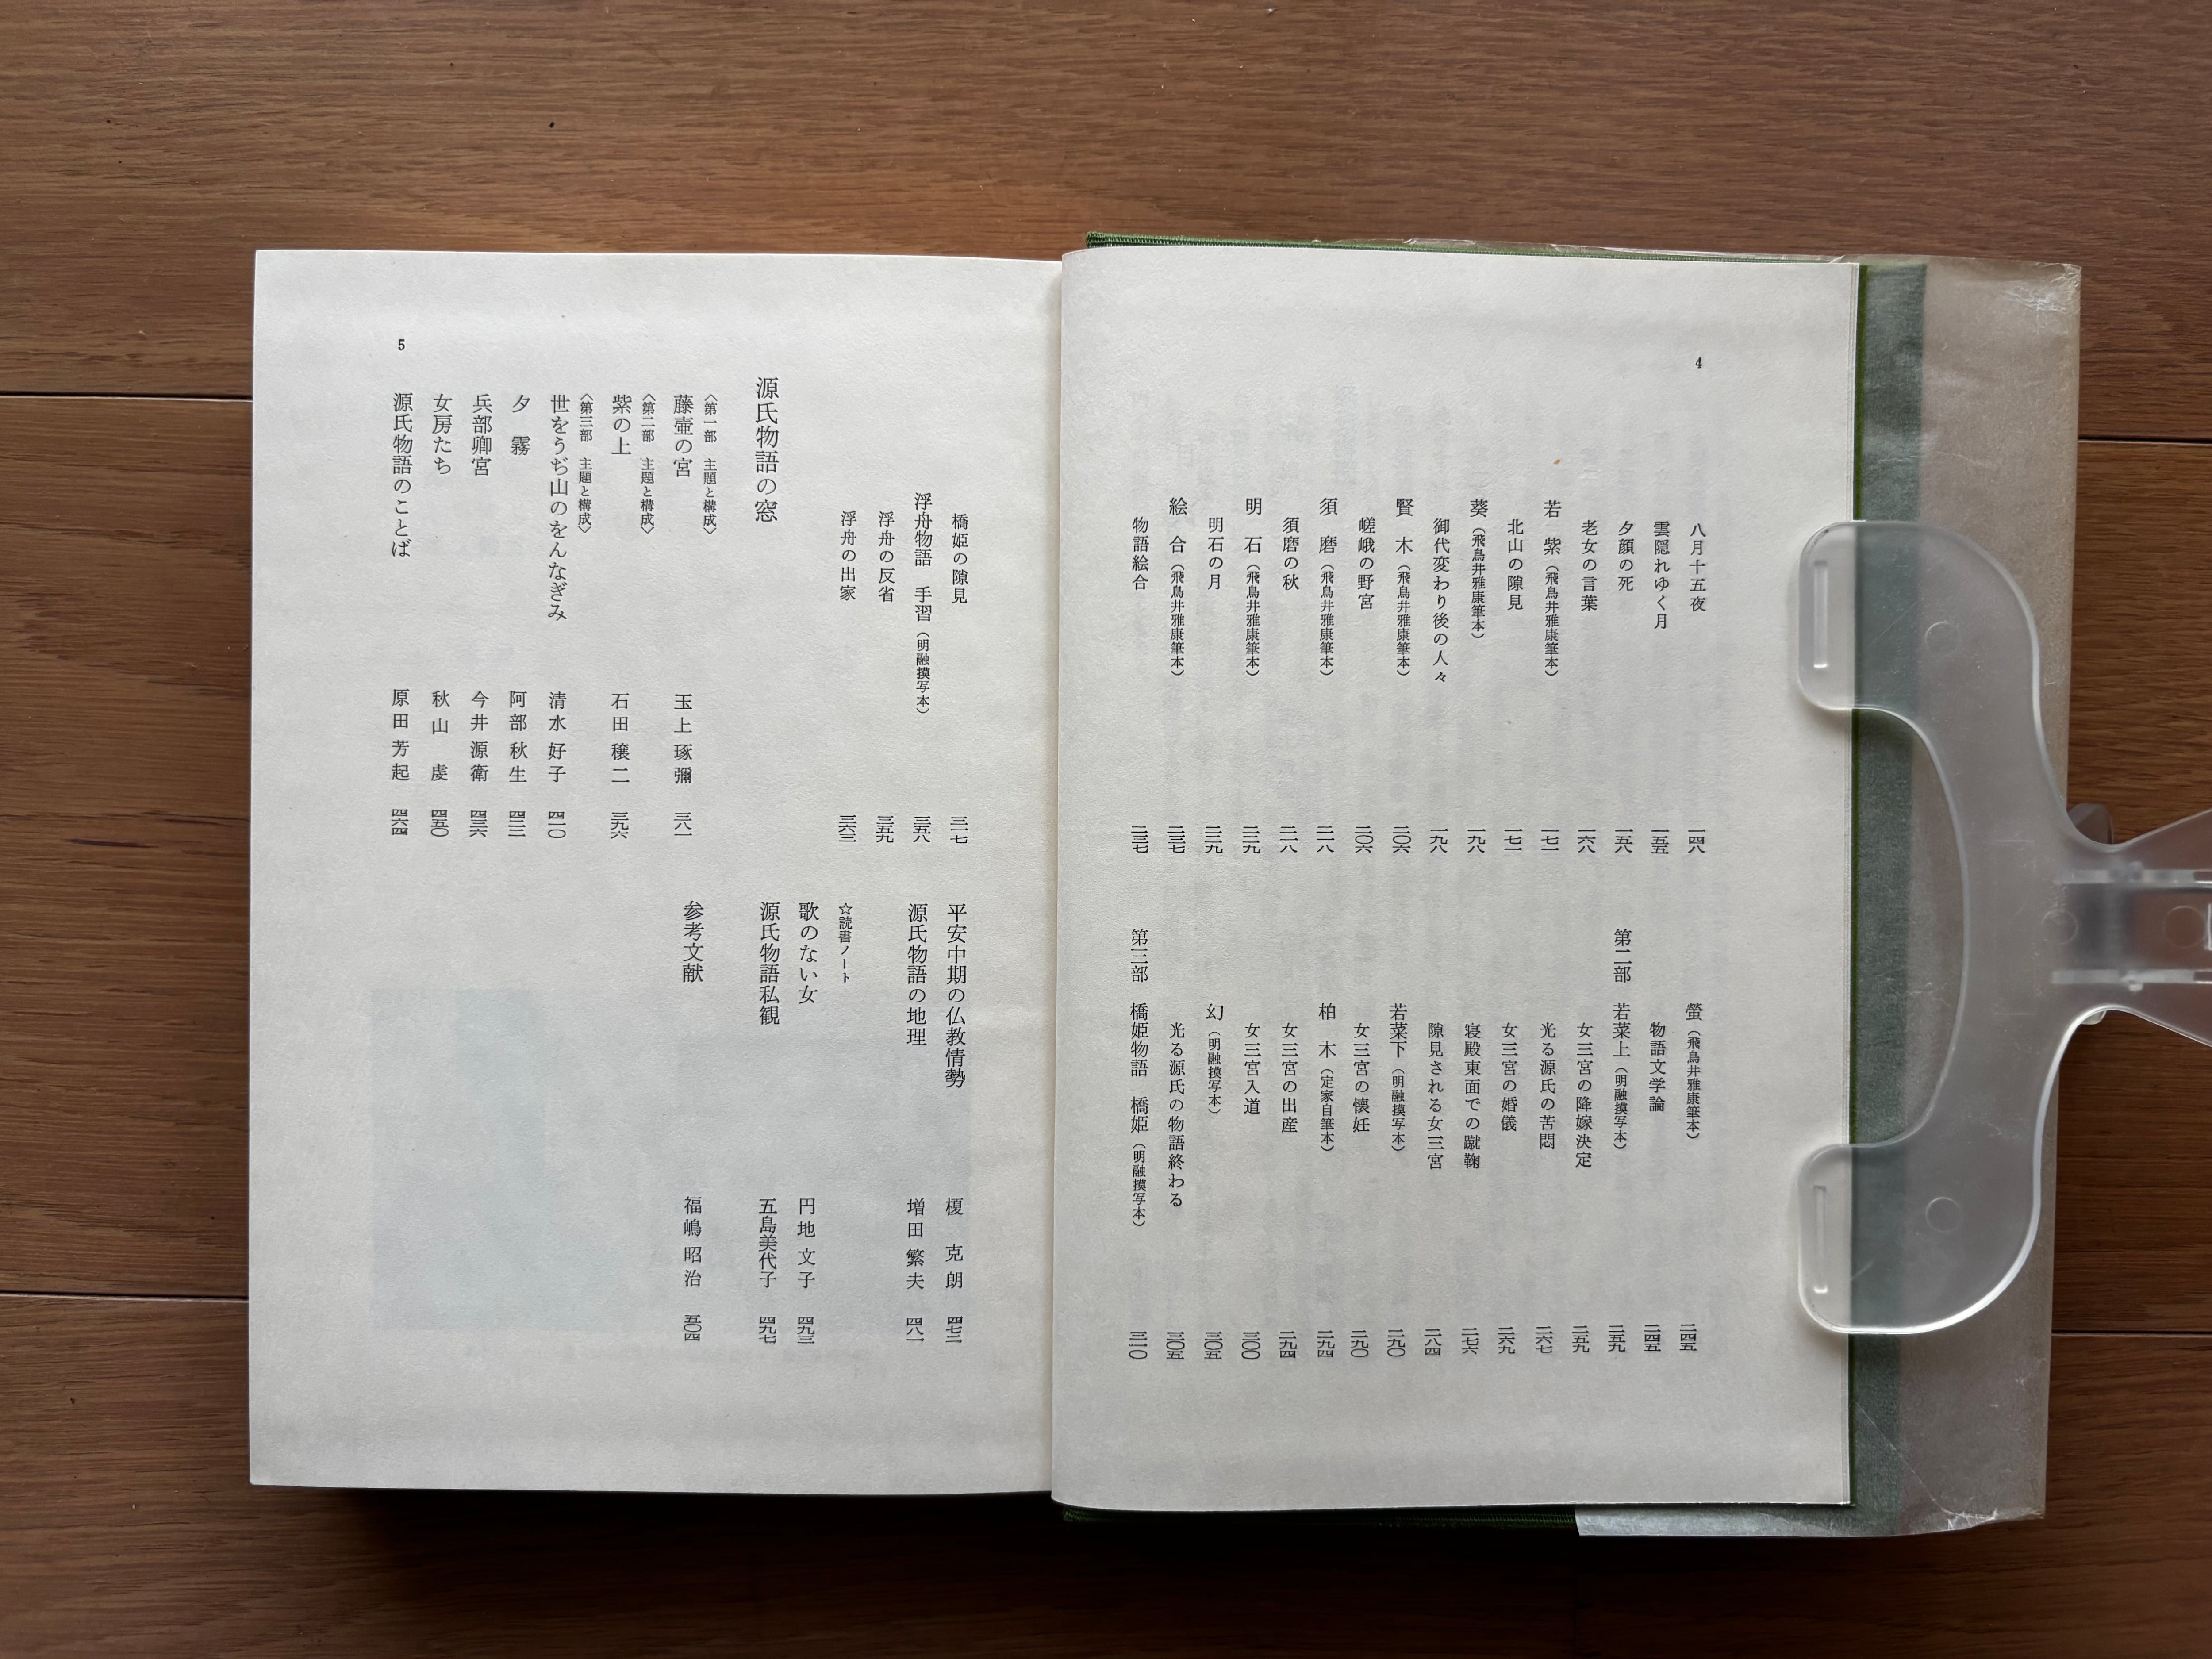 4
八月十五夜 一四八
雲隠れゆく月 一五五
夕顔の死 一五八
老女の言葉 一六八
若 紫（飛鳥井雅康筆本） 一七一
北山の隙見 一七一
葵（飛鳥井雅康筆本） 一九八
御代変わり後の人々 一九八
賢 木（飛鳥井雅康筆本） 二〇六
嵯峨の野宮 二〇六
須 磨（飛鳥井雅康筆本） 二一八
須磨の秋 二一八
明 石（飛鳥井雅康筆本） 二二九
明石の月 二二九
絵 合（飛鳥井雅康筆本） 二三七
物語絵合 二三七
螢（飛鳥井雅康筆本） 二四五
物語文学論 二四五
第二部 若菜上（明融摸写本） 二五九
女三宮の降嫁決定 二五九
光る源氏の苦悶 二六七
女三宮の婚儀 二六九
寝殿東面での蹴鞠 二七六
隙見される女三宮 二八四
若菜下（明融摸写本） 二九〇
女三宮の懐妊 二九〇
柏 木（定家自筆本） 二九四
女三宮の出産 二九四
女三宮入道 三〇〇
幻（明融摸写本） 三〇五
光る源氏の物語終わる 三〇五
第三部 橋姫物語 橋姫（明融摸写本） 三一〇
橋姫の隙見 三一七
浮舟物語 手習（明融摸写本） 三五八
浮舟の反省 三五九
浮舟の出家 三六三
源氏物語の窓
〈第一部 主題と構成〉
藤壷の宮 玉上琢彌 三八一
〈第二部 主題と構成〉
紫の上 石田穣二 三九六
〈第三部 主題と構成〉
世をうぢ山のをんなぎみ 清水好子 四一〇
夕 霧 阿部秋生 四二三
兵部卿宮 今井源衛 四三六
女房たち 秋山 虔 四五〇
源氏物語のことば 原田芳起 四六四
平安中期の仏教情勢 榎 克朗 四七二
源氏物語の地理 増田繁夫 四八一
☆読書ノート
歌のない女 円地文子 四九三
源氏物語私観 五島美代子 四九七
参考文献 福嶋昭治 五〇四
5